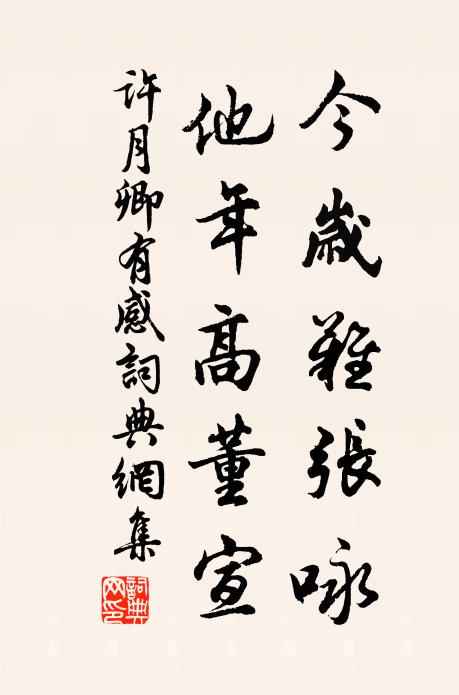 今歲難張咏
他年高董宣
許月卿有感詞典網集
詞典網印